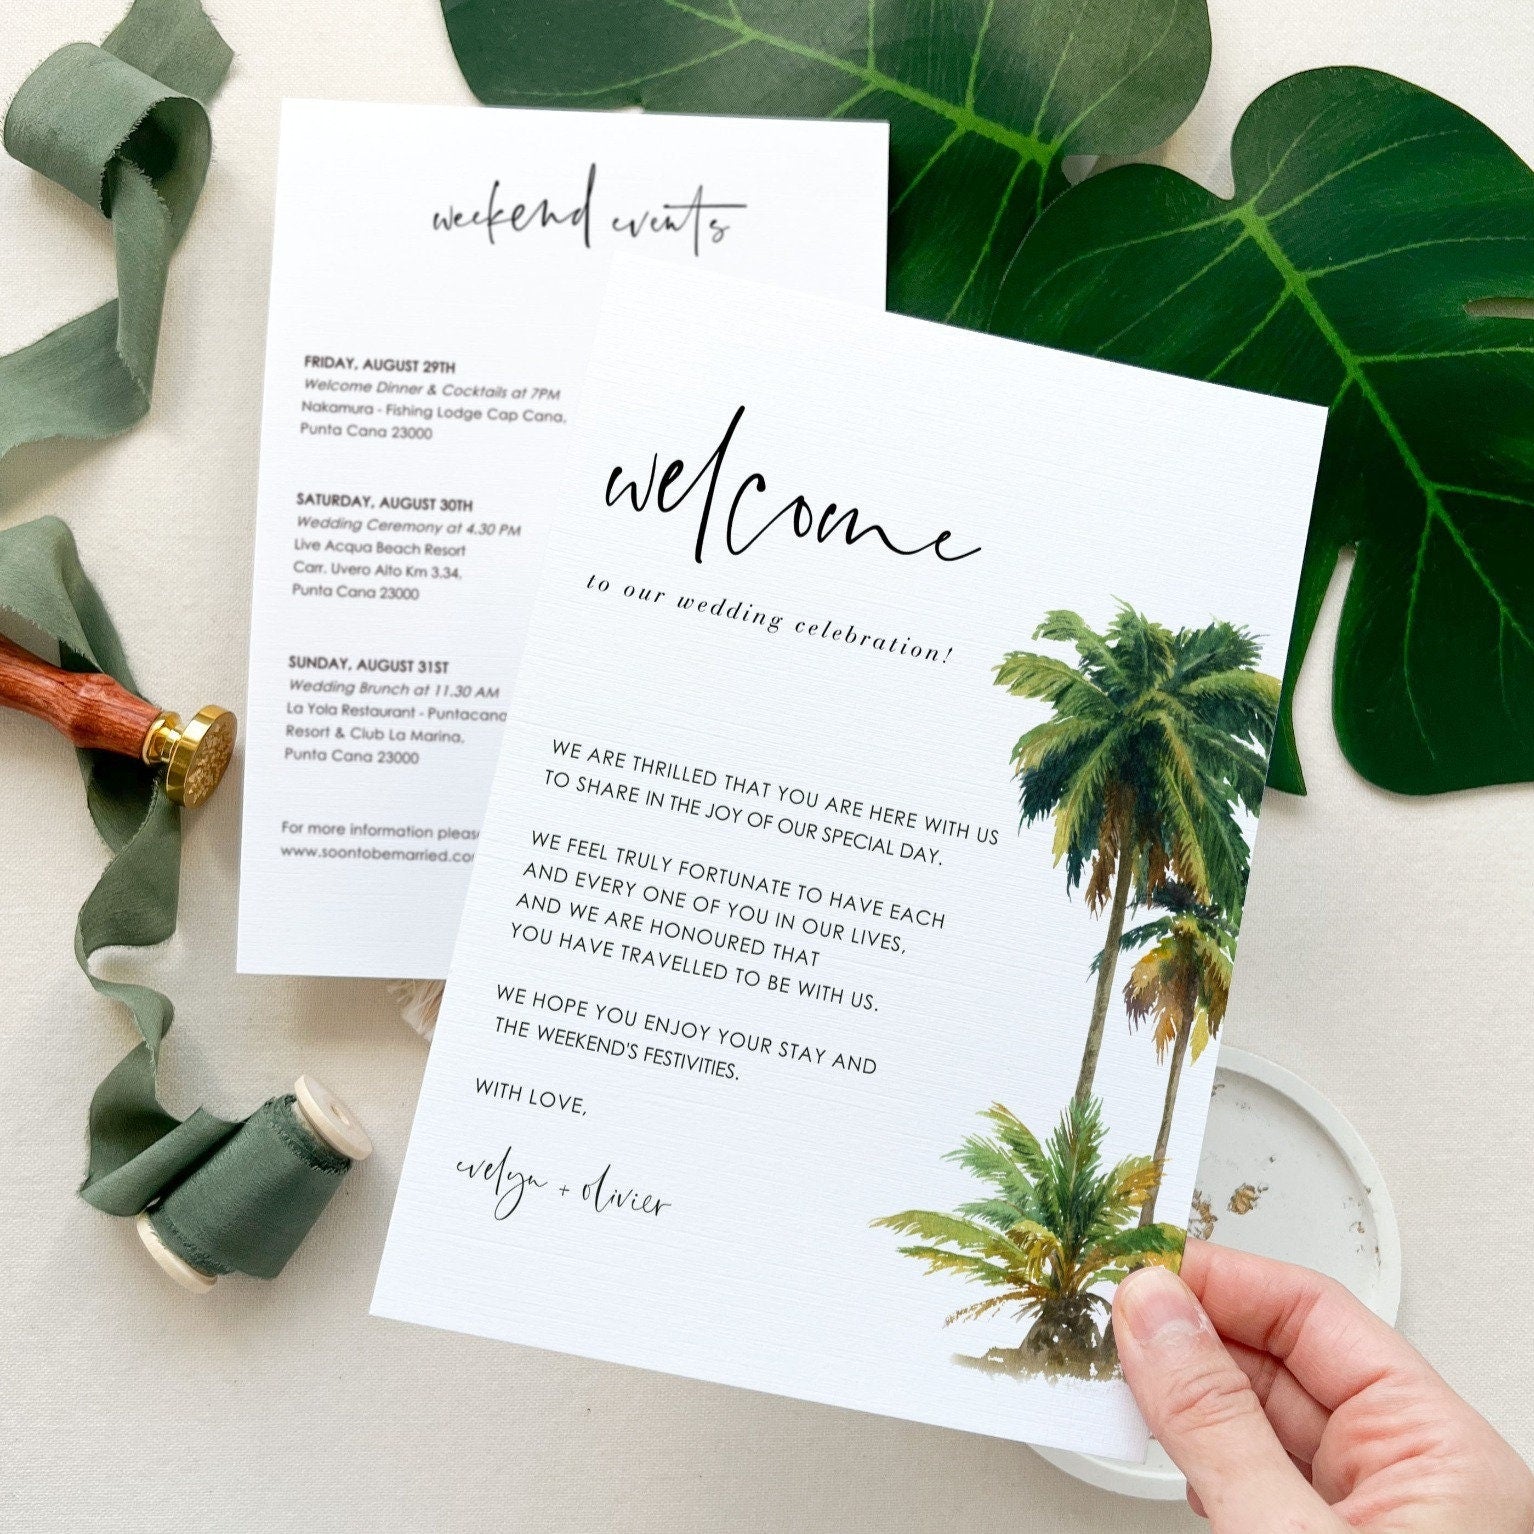 weekend events
FRIDAY, AUGUST 29TH
Welcome Dinner & Cocktails at 7PM
Nakamura - Fishing Lodge Cap Cana,
Punta Cana 23000
SATURDAY, AUGUST 30TH
Wedding Ceremony at 4.30 PM
Live Acqua Beach Resort
Carr. Uvero Alto Km 3.34,
Punta Cana 23000
SUNDAY, AUGUST 31ST
Wedding Brunch at 11.30 AM
La Yola Restaurant - Puntacana
Resort & Club La Marina,
Punta Cana 23000
For more information please
www.soontobemarried.co
welcome
to our wedding celebration!
WE ARE THRILLED THAT YOU ARE HERE WITH US
TO SHARE IN THE JOY OF OUR SPECIAL DAY.
WE FEEL TRULY FORTUNATE TO HAVE EACH
AND EVERY ONE OF YOU IN OUR LIVES,
AND WE ARE HONOURED THAT
YOU HAVE TRAVELLED TO BE WITH US.
WE HOPE YOU ENJOY YOUR STAY AND
THE WEEKEND'S FESTIVITIES.
WITH LOVE,
evelyn + olivier